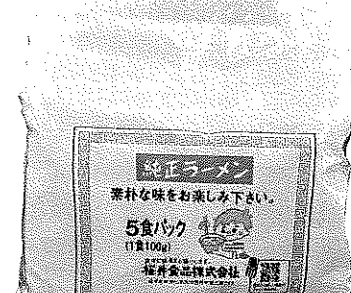 純正ラーメン
素朴な味をお楽しみ下さい。
5食パック
(1食100g)
桜井食品株式会社